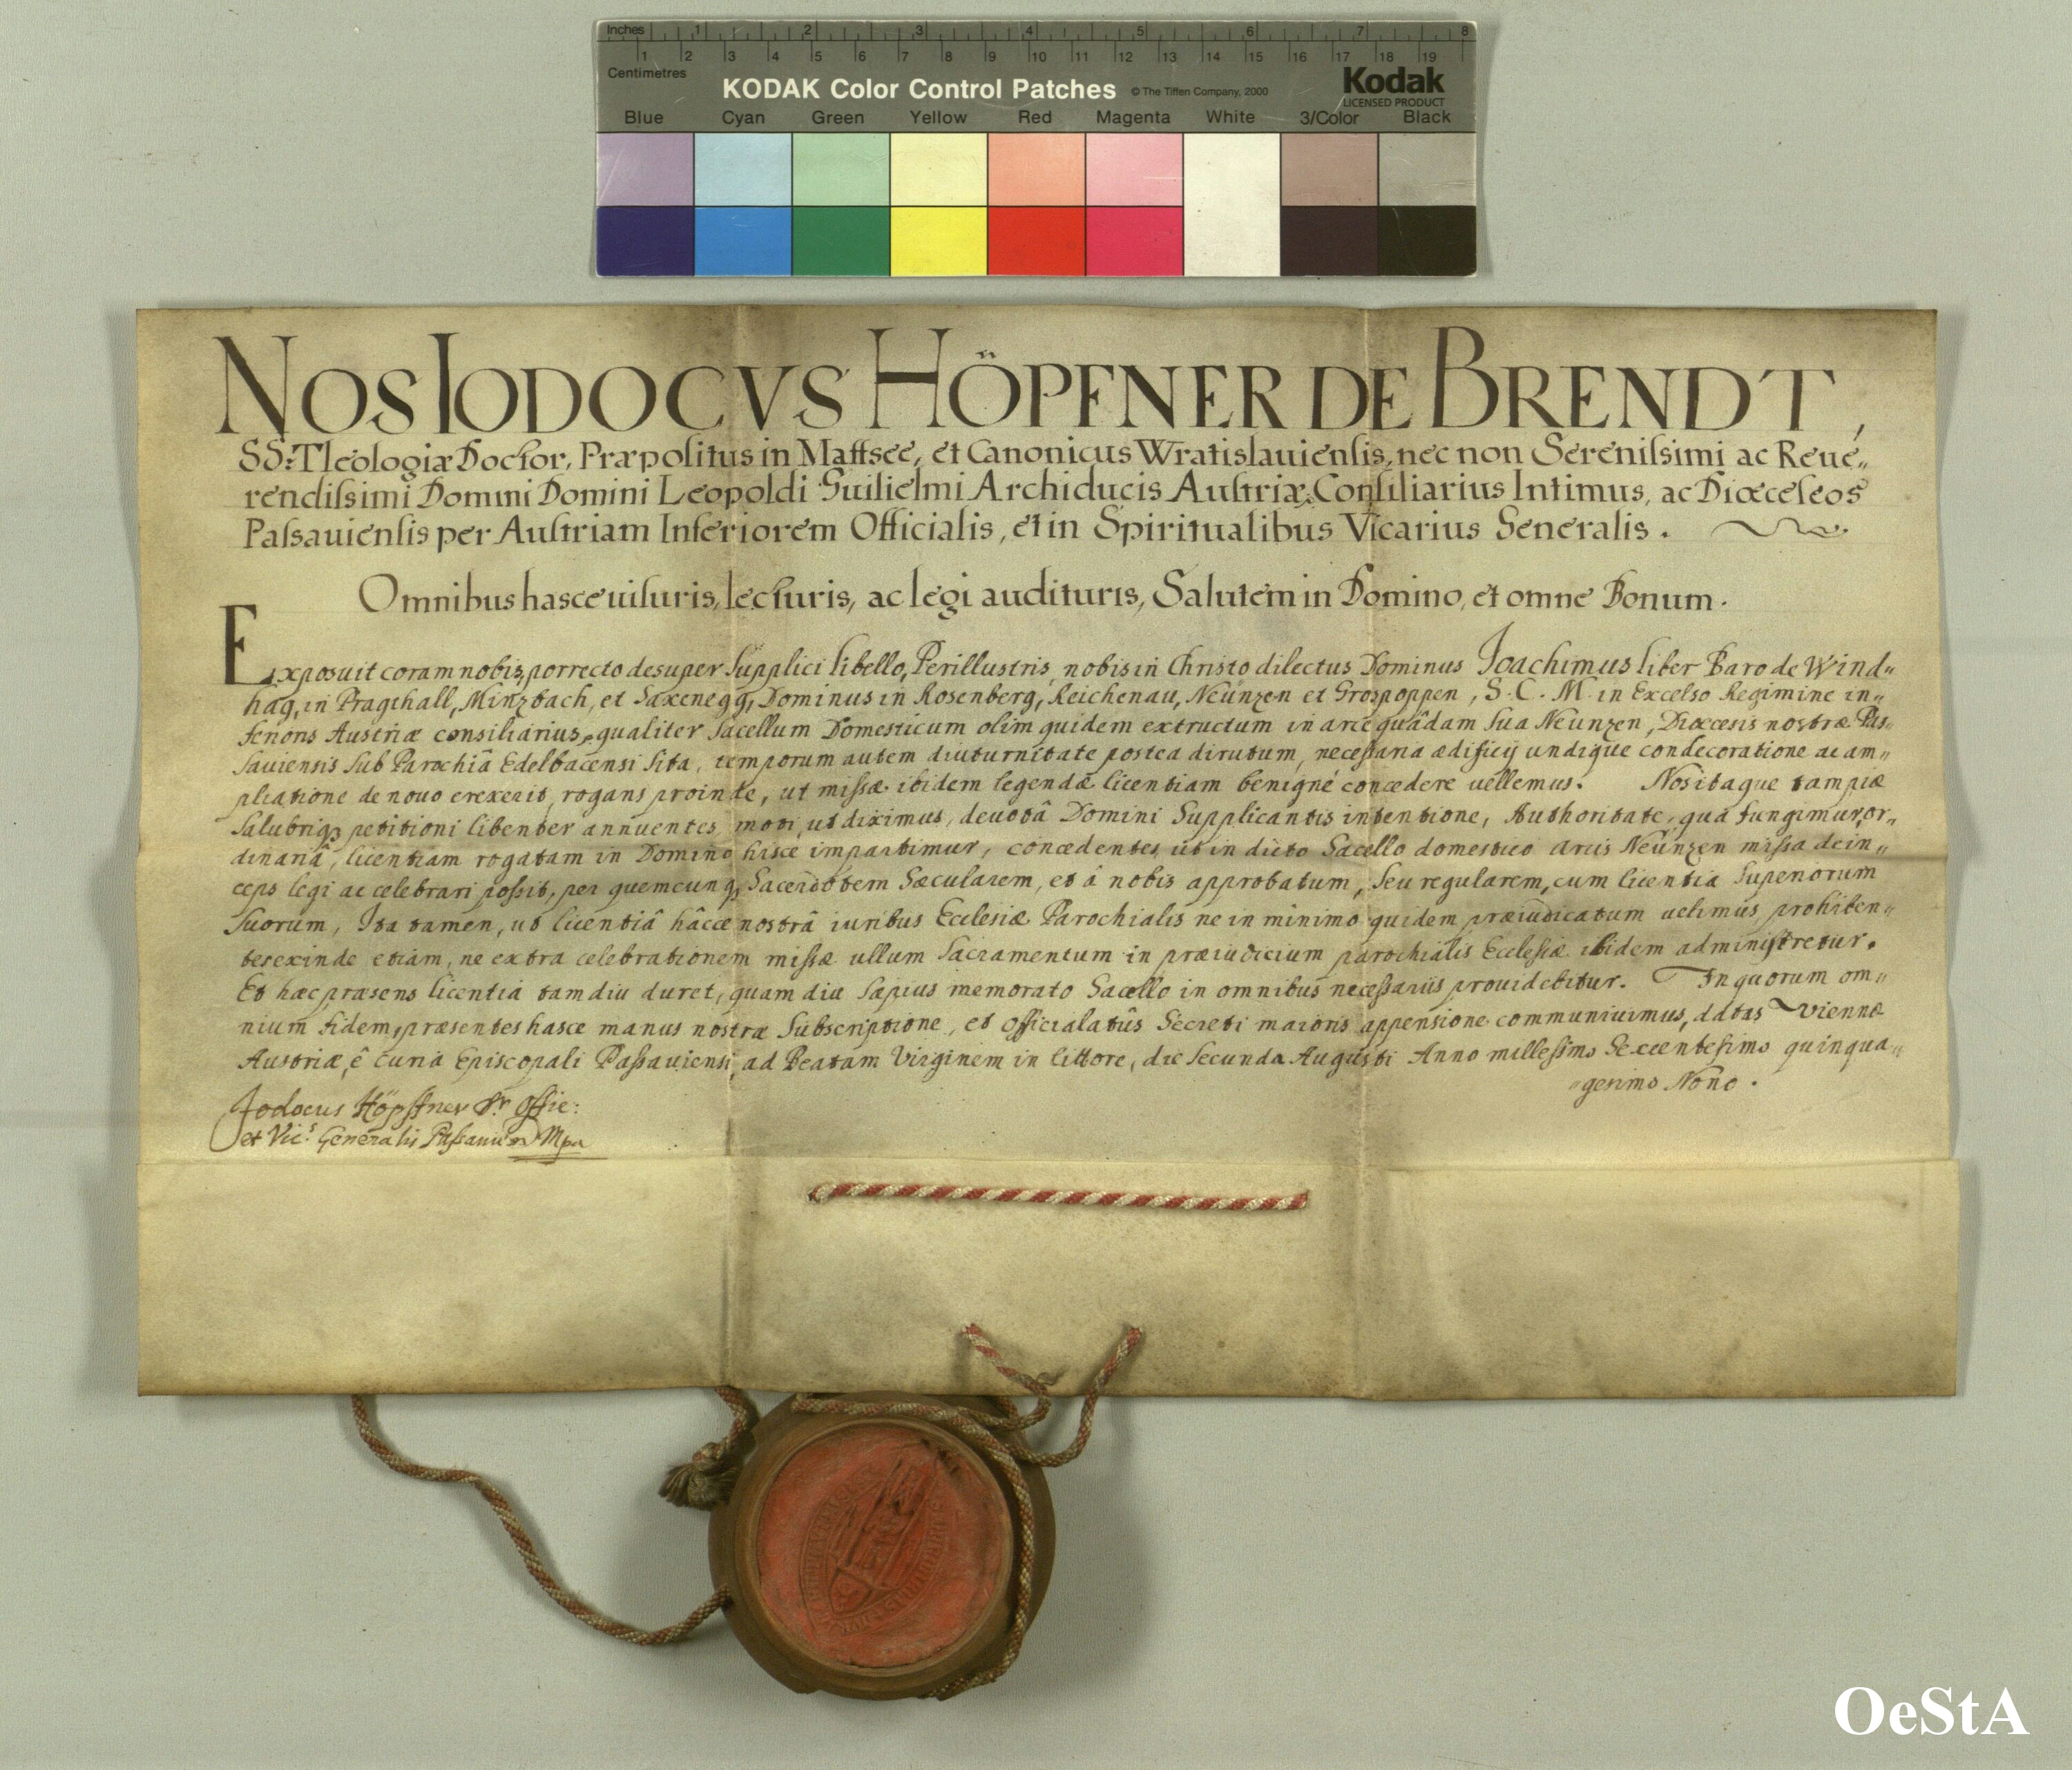 Inches 1 2 3 4 5 6 7 8
1 2 3 4 5 6 7 8 9 10 11 12 13 14 15 16 17 18 19
Centimetres
KODAK Color Control Patches © The Tiffen Company, 2000 Kodak
LICENSED PRODUCT
Blue Cyan Green Yellow Red Magenta White 3/Color Black
NOS IODOCVS HÖPFNER DE BRENDT,
SS: Theologiæ Doctor, Præpositus in Mattsee, et Canonicus Wratislauiensis, nec non Serenissimi ac Reue„
rendissimi Domini Domini Leopoldi Guilielmi Archiducis Austriæ Consiliarius Intimus, ac Diœceseos
Passauiensis per Austriam Inferiorem Officialis, et in Spiritualibus Vicarius Generalis.
Omnibus hasce uisuris, lecturis, ac legi audituris, Salutem in Domino, et omne Bonum.
Exposuit coram nobis, porrecto desuper supplici libello, Perillustris, nobis in Christo dilectus Dominus Joachimus liber Baro de Wind„
hag, in Pragthall, Minzbach, et Saxenegg, Dominus in Rosenberg, Reichenau, Neünzen et Grospoppen, S. C. M. in Excelso Regimine in„
ferioris Austriæ consiliarius, qualiter sacellum Domesticum olim quidem extructum in arce quâdam sua Neünzen, Diœcesis nostræ Pas„
sauiensis sub Parochiâ Edelbacensi sita, temporum autem diuturnitate postea dirutum, necessaria ædificij undique condecoratione ac am„
pliatione de nouo erexerit, rogans proinde, ut missæ ibidem legendæ licentiam benigné concedere uellemus. Nos itaque tam piæ
salubriq3 petitioni libenter annuentes, moti, ut diximus, deuotâ Domini Supplicantis intentione, Authoritate, quâ fungimur, or„
dinariâ, licentiam rogatam in Domino hisce impartimur, concedentes, ut in dicto Sacello domestico arcis Neünzen missa dein„
ceps legi ac celebrari possit, per quemcunq3 Sacerdotem Sæcularem, et â nobis approbatum, seu regularem, cum licentia Superiorum
suorum, Ita tamen, ut licentiâ hâcce nostrâ iuribus Ecclesiæ Parochialis ne in mînimo quidem præiudicatum uelimus, prohiben„
tes exinde etiam, ne extra celebrationem missæ ullum Sacramentum in præiudicium parochialis Ecclesiæ ibidem administretur.
Et hæc præsens licentia tam diu duret, quam diu sæpius memorato Sacello in omnibus necessariis prouidebitur. In quorum om„
nium fidem, præsentes hasce manus nostræ subscriptione, et Officialatûs Secreti maioris appensione communiuimus, datas Viennæ
Austriæ, ê Curia Episcopali Passauiensi, ad Beatam Virginem in littore, die secunda Augusti Anno millesimo Sexcentesimo quinqua„
„gesimo Nono.
Jodocus Höpffner Dr Offic:
et Vic: Generalis Passauien Mpa
OeStA